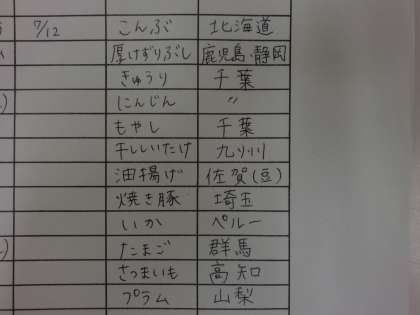 7/12 こんぶ 北海道
厚けずりぶし 鹿児島・静岡
きゅうり 千葉
にんじん 〃
もやし 千葉
干ししいたけ 九州
油揚げ 佐賀(豆)
焼き豚 埼玉
いか ペルー
たまご 群馬
さつまいも 高知
プラム 山梨